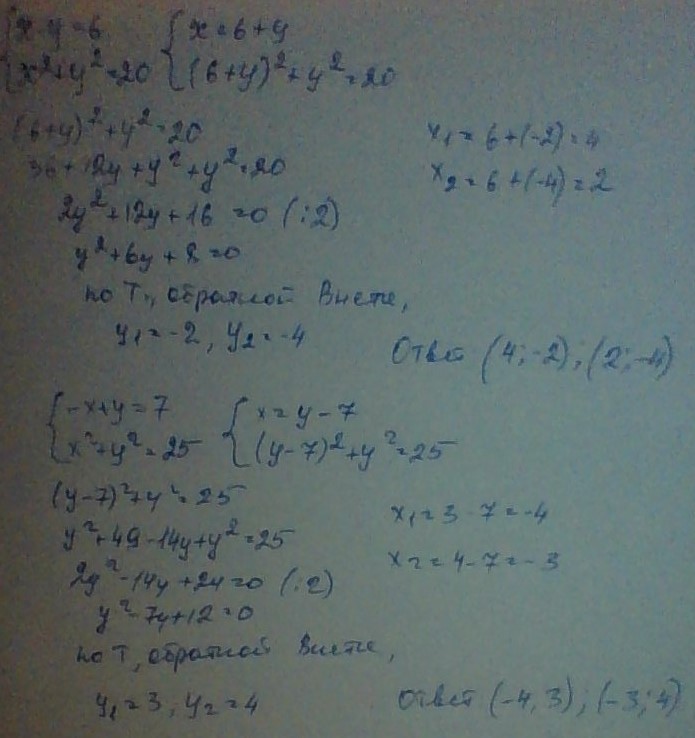 { x-y=6 { x=6+y
{ x²+y²=20 { (6+y)²+y²=20
(6+y)²+y²=20
36+12y+y²+y²=20
2y²+12y+16=0 (:2)
y²+6y+8=0
по Т., обратной Виете,
y₁=-2, y₂=-4
x₁=6+(-2)=4
x₂=6+(-4)=2
Ответ (4;-2);(2;-4)
{ -x+y=7 { x=y-7
{ x²+y²=25 { (y-7)²+y²=25
(y-7)²+y²=25
y²+49-14y+y²=25
2y²-14y+24=0 (:2)
y²-7y+12=0
по Т, обратной Виете,
y₁=3, y₂=4
x₁=3-7=-4
x₂=4-7=-3
Ответ (-4,3);(-3;4)